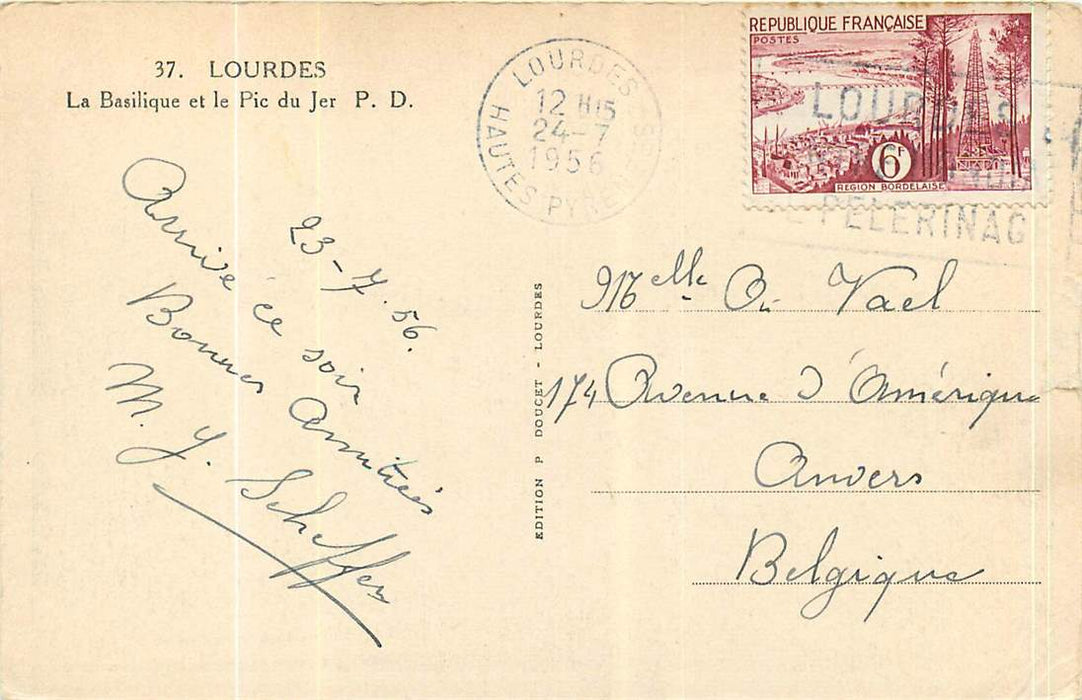 37. LOURDES
La Basilique et le Pic du Jer P. D.
LOURDES
12 H15
24-7
1956
HAUTES PYRE
REPUBLIQUE FRANÇAISE
POSTES
6F
REGION BORDELAISE
LOURDES
PELERINAG
23-7.56.
Arrivé ce soir
Bonnes Amitiés
M. J. Scheffer
EDITION P DOUCET - LOURDES
Melle Vael
174 Avenue d'Amérique
Anvers
Belgique